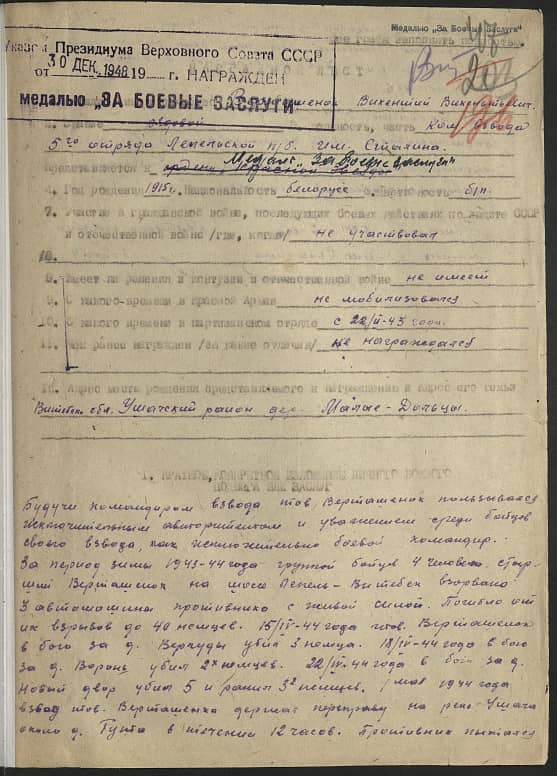 Медалью „За Боевые Заслуги"
Указом Президиума Верховного Совета СССР
от 30 ДЕК. 1948 19 г. НАГРАЖДЕН
медалью „ЗА БОЕВЫЕ ЗАСЛУГИ"
Викентий Викентьевич.
рядовой часть Ком. взвода
5го отряда Лепельской п/б. им. Сталина.
представляется к Медаль „За Боевые Заслуги"
4. Год рождения 1915г. Национальность белорус партность б/п.
7. Участие в гражданской войне, последующих боевых действиях по защите СССР
и отечественной войне /где, когда/ не участвовал
8. Имеет ли ранения и контузии в отечественной войне не имеет
9. С какого времени в Красной Армии не мобилизовался
10. С какого времени в партизанском отряде с 22/II-43 года.
11. Чем ранее награжден /за какие отличия/ не награждался
12. Адрес места рождения представляемого к награждению и адрес его семьи
Витебск. обл. Ушачский район дер. Малые-Дольцы.
1. КРАТКОЕ, КОНКРЕТНОЕ ИЗЛОЖЕНИЕ ЛИЧНОГО БОЕВОГО
ПОДВИГА ИЛИ ЗАСЛУГ
Будучи командиром взвода тов. Верташенок пользывался
исключительным авторитетом и уважением среди бойцов
своего взвода, как исключительно боевой командир.
За период зимы 1943-44 года группой бойцов 4 человека, стар-
ший Верташенок на шоссе Лепель-Витебск взорвано
3 автомашины противника с живой силой. Погибло от
их взрывов до 40 немцев. 15/IV-44 года тов. Верташенок
в бою за д. Веркуды убил 3 немца. 18/IV-44 года в бою
за д. Воронь убил 2х немцев. 22/IV-44 года в бою за д.
Новый двор убил 5 и ранил 3х немцев. 1 мая 1944 года
взвод тов. Верташенка держал переправу на реке-Ушача
около д. в течении 12 часов. Противник пытался